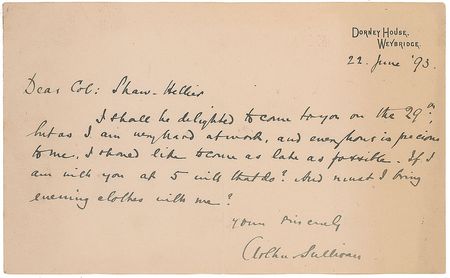 DORNEY HOUSE,
WEYBRIDGE.
22. June '93.
Dear Col: Shaw-Hellier
I shall be delighted to come to you on the 29th,
but as I am very hard at work, and every hour is precious
to me, I should like to come as late as possible. If I
am with you at 5 will that do? And must I bring
evening clothes with me?
Yours sincerely
Arthur Sullivan